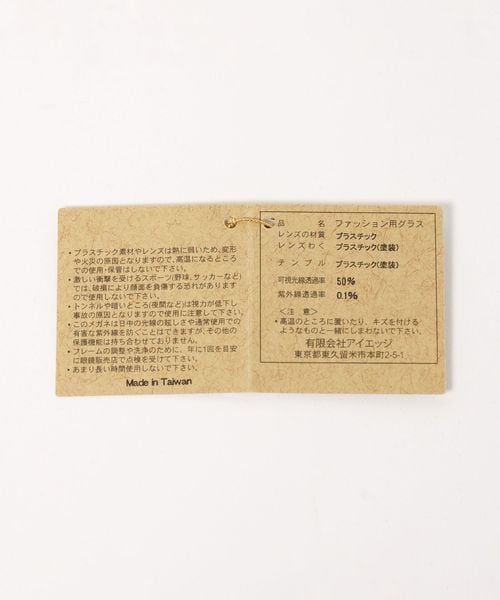 ・プラスチック素材やレンズは熱に弱いため、変形
や火災の原因となりますので、高温になるところ
での使用・保管はしないで下さい。
・激しい衝撃を受けるスポーツ(野球、サッカーなど)
では、破損により顔面を負傷する恐れがあります
ので使用しないで下さい。
・トンネルや暗いどころ(夜間など)は視力が低下し
事故の原因となりますので使用に注意して下さい。
・このメガネは日中の光線の眩しさや通常使用での
有害な紫外線を防ぐことはできますが、その他の
保護機能は持ち合わせておりません。
・フレームの調整や洗浄のために、年に1回を目安
に眼鏡販売店で点検を受けて下さい。
・あまり長い時間使用しないで下さい。
Made in Taiwan
品 名 ファッション用グラス
レンズの材質 プラスチック
レンズわく プラスチック(塗装)
テンプル プラスチック(塗装)
可視光線透過率 50%
紫外線透過率 0.1%
<注 意>
・高温のところに置いたり、キズを付ける
ようなものと一緒にしまわないで下さい。
有限会社アイエッジ
東京都東久留米市本町2-5-1